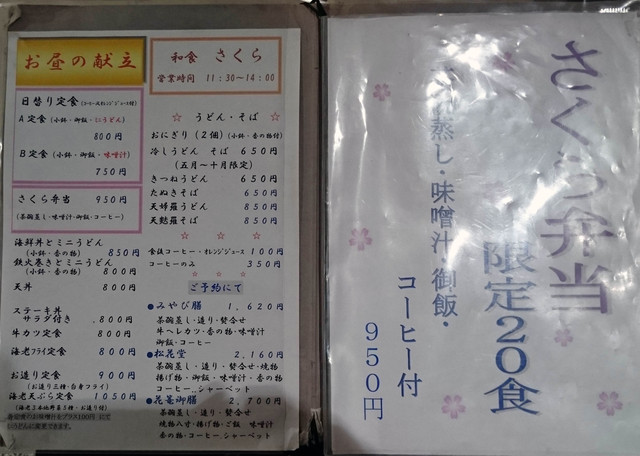 お昼の献立
日替り定食 (コーヒーorオレンジジュース付)
A定食 (小鉢・御飯・ミニうどん)
800円
B定食 (小鉢・御飯・味噌汁)
750円
さくら弁当 950円
(茶碗蒸し・味噌汁・御飯・コーヒー)
海鮮丼とミニうどん
(小鉢・香の物) 850円
鉄火巻きとミニうどん
(小鉢・香の物) 800円
天丼 800円
ステーキ丼
サラダ付き .800円
牛カツ定食 800円
海老フライ定食 800円
お造り定食 900円
(お造り三種・白身フライ)
海老天ぷら定食 1050円
(海老3本地野菜3種・お造り付)
各定食のお味噌汁をプラス100円にて
ミニうどんに変更できます。
和食 さくら
営業時間 11:30~14:00
☆ うどん・そば ☆
おにぎり(2個) (小鉢・香の物付)
冷しうどん そば 650円
(五月~十月限定)
きつねうどん 650円
たぬきそば 650円
天婦羅うどん 850円
天麩羅そば 850円
☆ ☆ ☆
食後コーヒー・オレンジジュース 100円
コーヒーのみ 350円
☆ ☆ ☆
ご予約にて
●みやび膳 1,620円
茶碗蒸し・造り・賛合せ
牛ヘレカツ・香の物・味噌汁
御飯・コーヒー
●松花堂 2,160円
茶碗蒸し・造り・賛合せ・焼物
揚げ物・御飯・味噌汁・香の物
コーヒー、シャーベット
●花菴御膳 2,700円
茶碗蒸し・造り・賛合せ
焼物八寸・揚げ物・ご飯 味噌汁
香の物・コーヒー、シャーベット
さくら弁当
限定20食
蒸し・味噌汁・御飯・
コーヒー付
950円